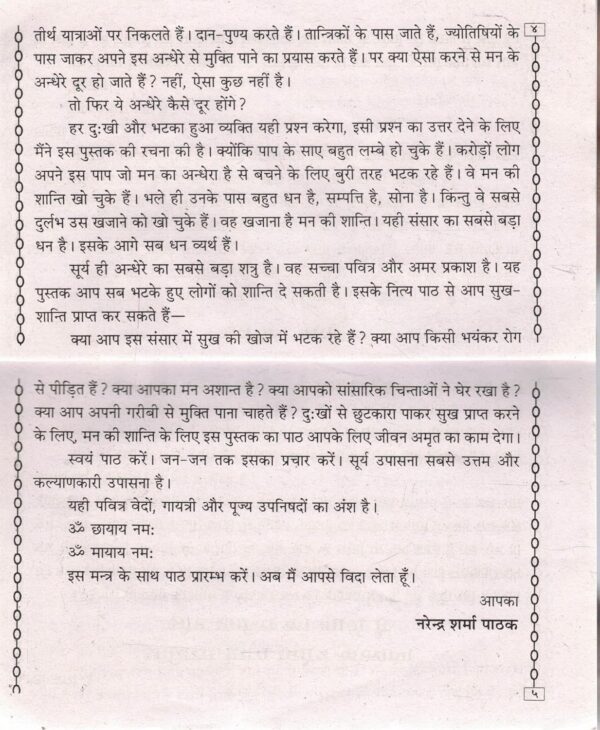 ४
तीर्थ यात्राओं पर निकलते हैं। दान-पुण्य करते हैं। तान्त्रिकों के पास जाते हैं, ज्योतिषियों के
पास जाकर अपने इस अन्धेरे से मुक्ति पाने का प्रयास करते हैं। पर क्या ऐसा करने से मन के
अन्धेरे दूर हो जाते हैं? नहीं, ऐसा कुछ नहीं है।
तो फिर ये अन्धेरे कैसे दूर होंगे?
हर दु:खी और भटका हुआ व्यक्ति यही प्रश्न करेगा, इसी प्रश्न का उत्तर देने के लिए
मैंने इस पुस्तक की रचना की है। क्योंकि पाप के साए बहुत लम्बे हो चुके हैं। करोड़ों लोग
अपने इस पाप जो मन का अन्धेरा है से बचने के लिए बुरी तरह भटक रहे हैं। वे मन की
शान्ति खो चुके हैं। भले ही उनके पास बहुत धन है, सम्पत्ति है, सोना है। किन्तु वे सबसे
दुर्लभ उस खजाने को खो चुके हैं। वह खजाना है मन की शान्ति। यही संसार का सबसे बड़ा
धन है। इसके आगे सब धन व्यर्थ हैं।
सूर्य ही अन्धेरे का सबसे बड़ा शत्रु है। वह सच्चा पवित्र और अमर प्रकाश है। यह
पुस्तक आप सब भटके हुए लोगों को शान्ति दे सकती है। इसके नित्य पाठ से आप सुख-
शान्ति प्राप्त कर सकते हैं—
क्या आप इस संसार में सुख की खोज में भटक रहे हैं? क्या आप किसी भयंकर रोग
से पीड़ित हैं? क्या आपका मन अशान्त है? क्या आपको सांसारिक चिन्ताओं ने घेर रखा है?
क्या आप अपनी गरीबी से मुक्ति पाना चाहते हैं? दु:खों से छुटकारा पाकर सुख प्राप्त करने
के लिए, मन की शान्ति के लिए इस पुस्तक का पाठ आपके लिए जीवन अमृत का काम देगा।
स्वयं पाठ करें। जन-जन तक इसका प्रचार करें। सूर्य उपासना सबसे उत्तम और
कल्याणकारी उपासना है।
यही पवित्र वेदों, गायत्री और पूज्य उपनिषदों का अंश है।
ॐ छायाय नम:
ॐ मायाय नम:
इस मन्त्र के साथ पाठ प्रारम्भ करें। अब मैं आपसे विदा लेता हूँ।
आपका
नरेन्द्र शर्मा पाठक
५